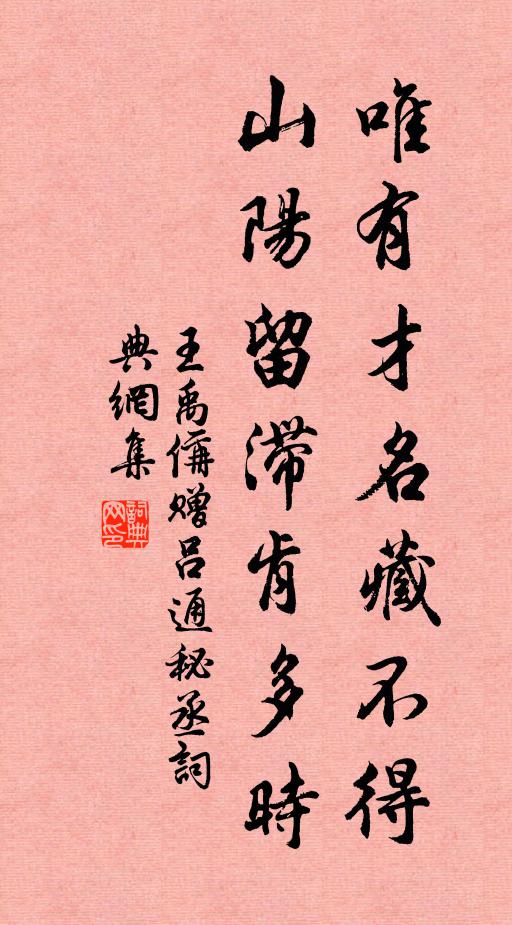 唯有才名藏不得
山陽留滯肯多時
王禹偁贈呂通秘丞詞
典網集
詞典網印